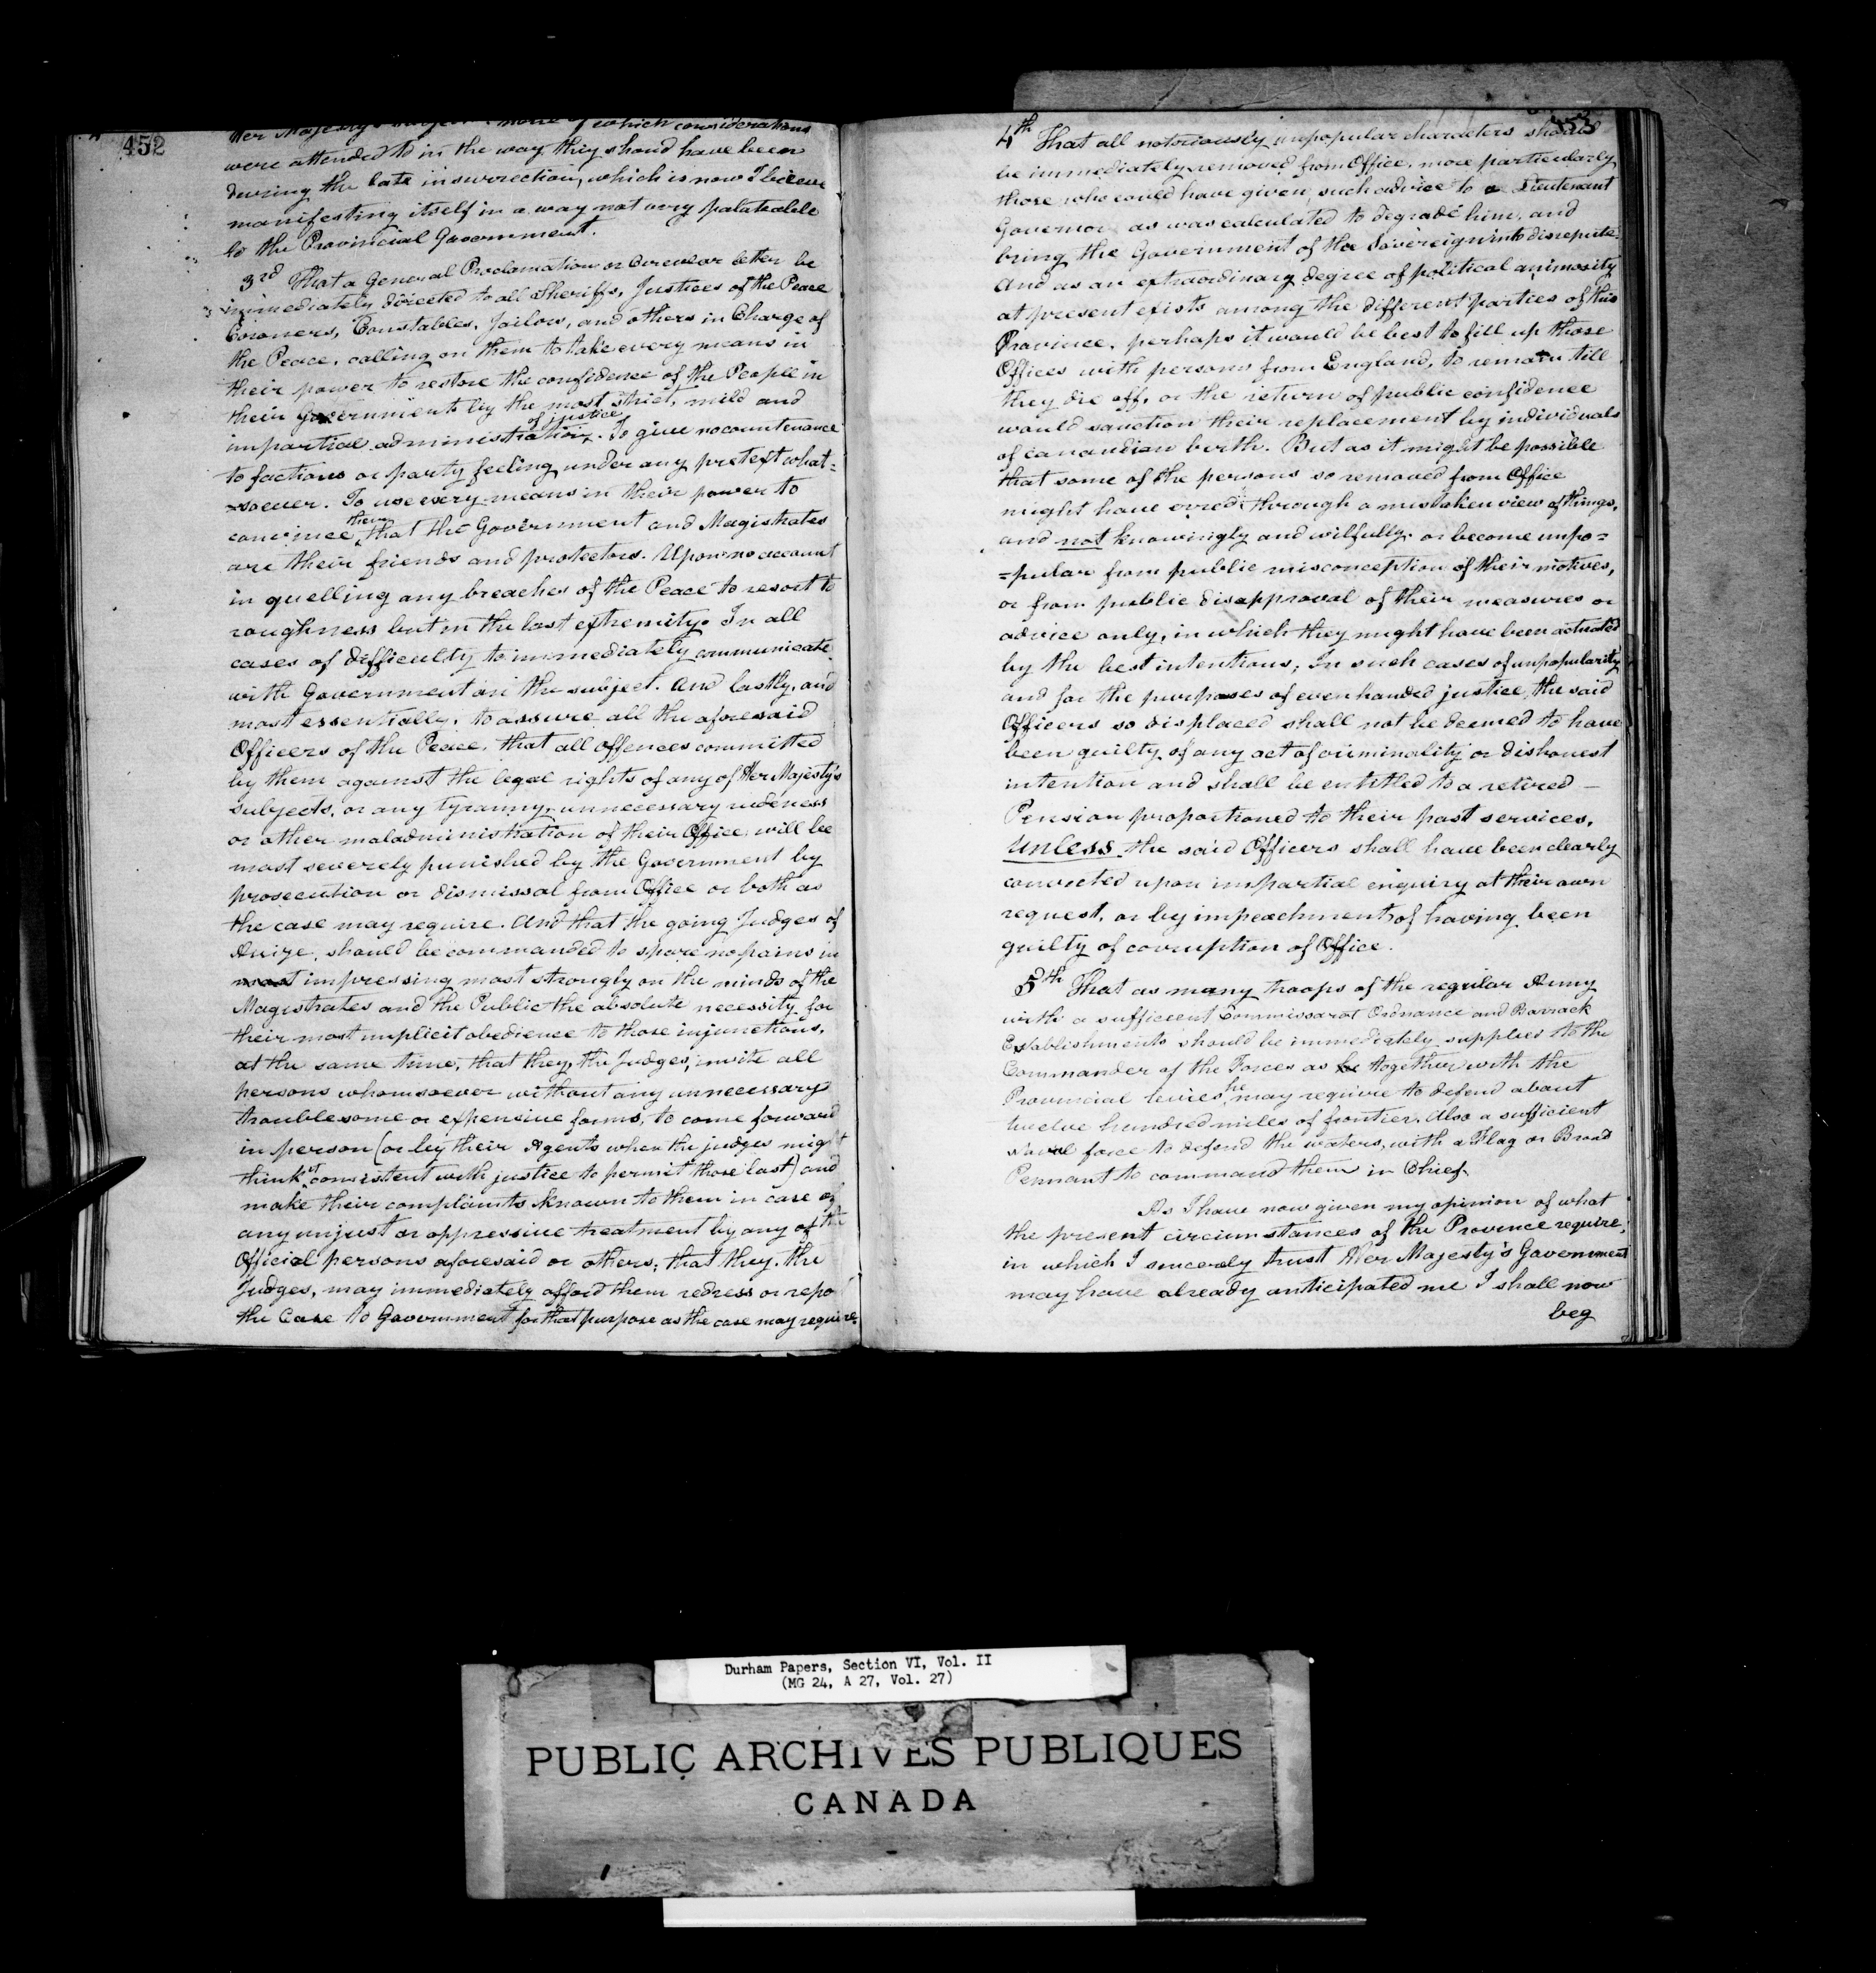 452
Her Majesty's none of which considerations
were attended to in the way they shoud have been
during the late insurrection, which is now I believe
manifesting itself in a way not very palatable
to the Provincial Government.
3rd That a General Proclamation or Circular letter be
immediately directed to all Sheriffs, Justices of the Peace
Coroners, Constables, Jailors, and others in Charge of
the Peace, calling on them to take every means in
their power to restore the confidence of the People in
their government by the most strict, mild and
impartial administration of justice. To give no countenance
to factions or party feeling under any pretext what=
=soever. To use every means in their power to
convince them that the Government and Magistrates
are their friends and protectors. Upon no account
in quelling any breaches of the Peace to resort to
roughness but in the last extremity. In all
cases of difficulty to immediately communicate
with Government on the subject. And lastly, and
most essentially, to assure all the aforesaid
Officers of the Peace, that all offences committed
by them against the legal rights of any of Her Majesty's
subjects, or any tyranny, unnecessary rudeness
or other maladministration of their Office, will be
most severely punished by the Government by
prosecution or dismissal from Office or both as
the case may require. And that the going Judges of
Assize, should be commanded to spare no pains in
most impressing most strongly on the minds of the
Magistrates and the Public the absolute necessity for
their most implicit obedience to those injunctions,
at the same time, that they, the Judges, invite all
persons whomsoever without any unnecessary
troublesome or expensive forms, to come forward
in person (or by their Agents when the judges might
think it consistent with justice to permit those last) and
make their complaints known to them in case of
any unjust or oppressive treatment by any of the
Official persons aforesaid or others; that they, the
Judges, may immediately afford them redress or repo
the Case to Government for that purpose as the case may require.
453
4th That all notoriously unpopular characters should
be immediately removed from Office, more particularly
those who could have given such advice to a Lieutenant
Governor as was calculated to degrade him, and
bring the Government of the Sovereign into disrepute.
And as an extraordinary degree of political animosity
at present exists among the different parties of this
Province, perhaps it would be best to fill up those
Offices with persons from England, to remain till
they die off, or the return of public confidence
would sanction their replacement by individuals
of Canandian birth. But as it might be possible
that some of the persons so removed from Office
might have erred through a mistaken view of things,
and not knowingly and wilfully. or become unpo=
=pular from public misconception of their motives,
or from public disapproval of their measures or
advice only, in which they might have been actuated
by the best intentions; In such cases of unpopularity
and for the purposes of even handed justice, the said
Officers so displaced shall not be deemed to have
been guilty of any act of criminality or dishonest
intention and shall be entitled to a retired –
Pension proportioned to their past services,
Unless the said Officers shall have been clearly
convicted upon impartial enquiry at their own
request, or by impeachment, of having been
guilty of corruption of Office.
5th That as many troops of the regular Army
with a sufficient Commissariat Ordnance and Barrack
Establishments should be immediately supplied to the
Commander of the Forces as he together with the
Provincial levies he may require to defend about
twelve hundred miles of frontier. Also a sufficient
naval force to defend the waters, with a Flag or Broad
Pennant to command them in Chief.
As I have now given my opinion of what
the present circumstances of the Province require,
in which I sincerely trust Her Majesty's Government
may have already anticipated me I shall now
beg
Durham Papers, Section VI, Vol. II
(MG 24, A 27, Vol. 27)
PUBLIC ARCHIVES PUBLIQUES
CANADA